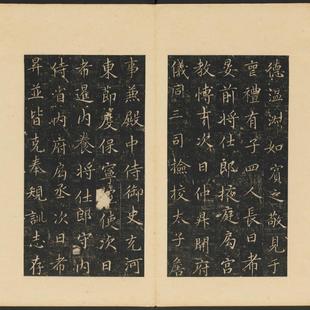 德溫淵如賓之敬見于
亹禮有子四人長曰希
晏前將仕郎掖庭局宮
教博士次曰仲昇開府
儀同三司撿挍太子詹
事兼殿中侍御史充河
東節度保寧 使次曰
希暹內養將仕郎守內
侍省內府局丞次曰希
昇並皆克奉規訓志存